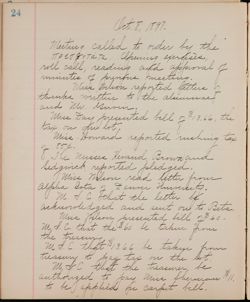 24
Oct. 8, 1897.
Meeting called to order by the
Opening exercises,
roll call, reading and approval of
minutes of previous meeting.
Miss Wilson reported letters of
thanks written to the alumnae
and Mr.
Miss Fay presented bill of $13.66, the
tax on our lot.
Miss Howard reported rushing tax
of
The Misses Kinard, Brown, and
Sedgwick reported pledged.
Miss Wilson read letter from
Alpha Beta of Denver University.
M & C that the letter be
acknowledged and sent on to Beta.
Miss Wilson presented bill of
M & C that the be taken from
the treasury.
M & C that $13.66 be taken from
treasury to pay tax on the lot.
M & C that the treasury be
authorized to pay Miss $11.
to be applied on carpet bill.